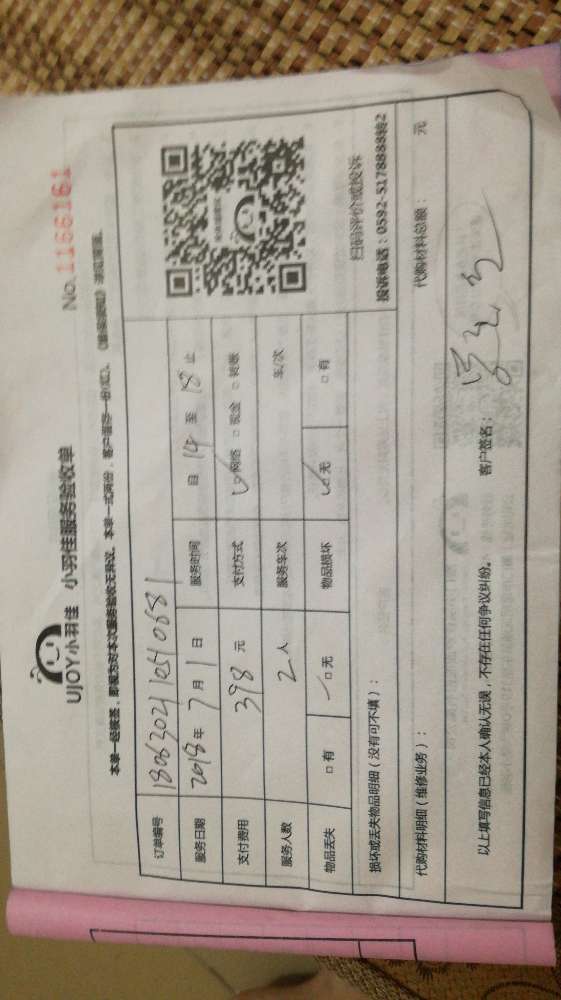 UJOY小羽佳 小羽佳服务验收单
No.1166161
本单一经接签，即视为对本次服务验收无异议。本单一式两份，客户留存一份(红)。
订单编号 180630211054 0681
服务日期 2018年 7月 1日 服务时间 自 14 至 18 止
支付费用 398 元 支付方式 ☑网络 □现金 □转账
服务人数 2 人 服务车次 车/次
物品丢失 □有 ☑无 物品损坏 ☑无 □有
扫码评价或投诉
投诉电话：0592-5178888转2
损坏或丢失物品明细（没有可不填）：
代购材料明细（维修业务）： 代购材料总额： 元
以上填写信息已经本人确认无误，不存在任何争议纠纷。 客户签名：